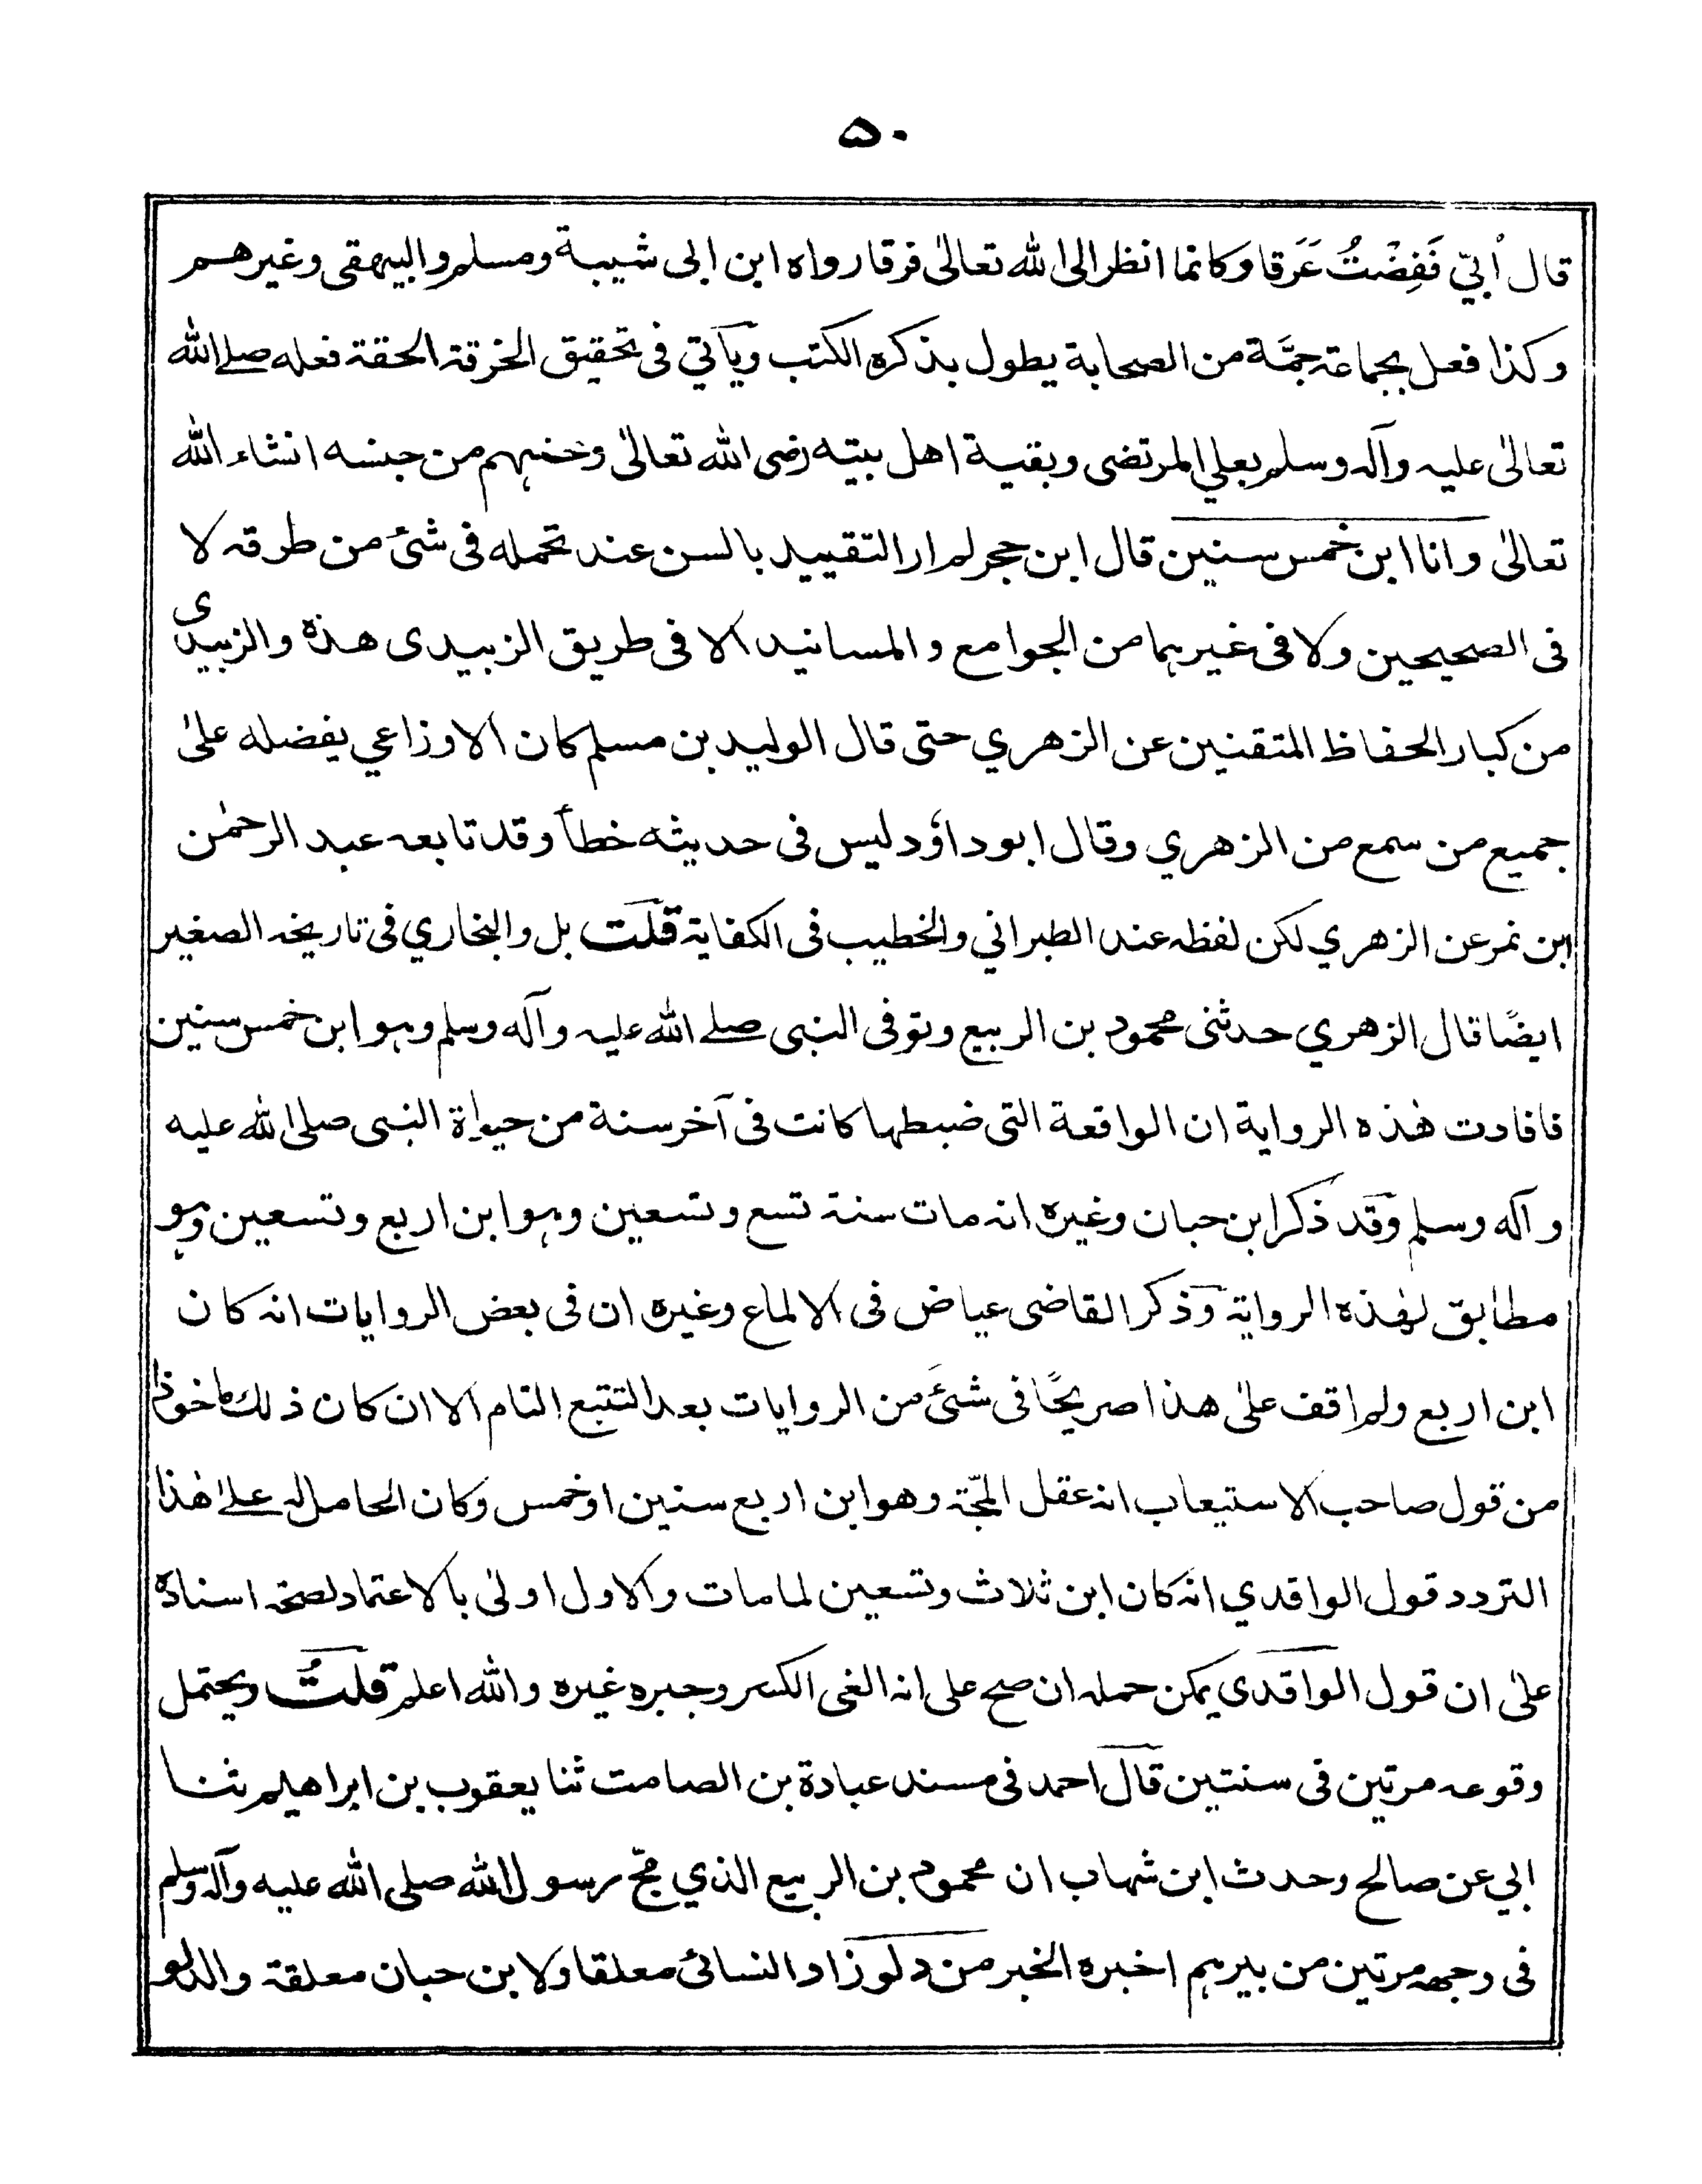 ۵۰
قال اُبيّ فَفِضْتُ عَرَقا وكانما انظر الى الله تعالىٰ فرقا رواه ابن ابى شيبة ومسلم والبيهقى وغيرهم
وكذا فعل بجماعة جمَّة من الصحابة يطول بذكره الكتب ويأتي فى تحقيق الخرقة الحقة فعله صلے الله
تعالىٰ عليه وآله وسلم بعلي المرتضى وبقية اهل بيته رضى الله تعالىٰ وعنهم من جنسه انشاء الله
تعالىٰ وانا ابن خمس سنين قال ابن حجر لم ار التقييد بالسن عند تحمله فى شئ من طرقه لا
فى الصحيحين ولا فى غيرهما من الجوامع والمسانيد الا فى طريق الزبيدى هذه والزبيدى
من كبار الحفاظ المتقنين عن الزهري حتى قال الوليد بن مسلم كان الاوزاعي يفضله علىٰ
جميع من سمع من الزهري وقال ابوداؤد ليس فى حديثه خطأ وقد تابعه عبد الرحمٰن
ابن نمر عن الزهري لكن لفظه عند الطبراني والخطيب فى الكفاية قلت بل والبخاري فى تاريخه الصغير
ايضًا قال الزهري حدثنى محمود بن الربيع وتوفى النبى صلے الله عليه وآله وسلم وهو ابن خمس سنين
فافادت هٰذه الرواية ان الواقعة التى ضبطها كانت فى آخر سنة من حيواة النبى صلى الله عليه
وآله وسلم وقد ذكر ابن حبان وغيره انه مات سنة تسع وتسعين وهو ابن اربع وتسعين وهو
مطابق لهٰذه الرواية وذكر القاضى عياض فى الالماع وغيره ان فى بعض الروايات انه كان
ابن اربع ولم اقف علىٰ هذا صريحًا فى شئ من الروايات بعد التتبع التام الا ان كان ذلك ماخوذا
من قول صاحب الاستيعاب انه عقل المجّة وهو ابن اربع سنين او خمس وكان الحامل له علےٰ هٰذا
التردد قول الواقدي انه كان ابن ثلاث وتسعين لما مات والاول اولىٰ بالاعتماد لصحة اسناده
علىٰ ان قول الواقدى يمكن حمله ان صح على انه الغى الكسر وجبره غيره والله اعلم قلتُ ويحتمل
وقوعه مرتين فى سنتين قال احمد فى مسند عبادة بن الصامت ثنا يعقوب بن ابراهيم ثنا
ابي عن صالح وحدث ابن شهاب ان محمود بن الربيع الذي مجّ رسول الله صلى الله عليه وآله وسلم
فى وجهه مرتين من بيرهم اخبره الخبر من دلو زاد النسائى معلقا ولابن حبان معلقة والدلو